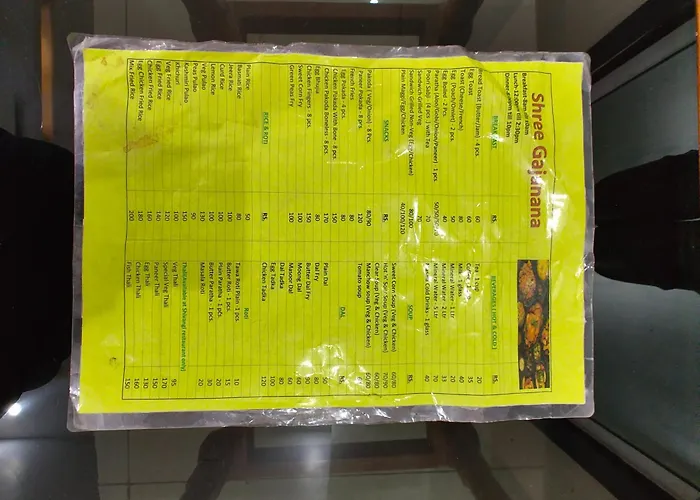 Shree Gajanana
Lunch-12.00pm till 2:30pm
till 10pm
BREAKFAST
Bread Toast (butter/Jam) - 4 pcs. 60
Egg Toast 60
Toast (Cheese/French) 80
Egg (Pouch/Omlet) - 2 pcs. 50
Egg Boiled - 2 Pcs. 40
Paratha (Aloo/Gobi/Onion/Paneer) - 1 pcs. 50/50/50/70
Poori Sabji - (4 pcs.) with Tea 70
Sandwich Grilled Veg 70
Sandwich Grilled Non-Veg (Egg/Chicken) 80/100
Plain Maggy/Egg/Chicken 40/100/120
SNACKS Rs.
Pakoda ( Veg/Onion) - 8 Pcs. 80/90
Paneer Pakoda - 8 prs. 150
French Fries 120
Egg Pokara - 4 pcs. 80
Chicken Pakoda With Bone - 8 pcs. 150
Chicken Pakoda Boneless - 8 pcs. 170
Egg Bhujia 80
Chicken Fingers - 8 pcs. 150
Sweet Corn Fry 100
Green Peas Fry 100
RICE & ROTI Rs.
Plain Rice 50
Basmati Rice 80
Jeera Rice 100
Curd Rice 100
Lemon Rice 100
Veg Pulao 130
Peas Pulao 90
Kashmiri Pulao 150
Khichuri 100
Veg Fried Rice 120
Egg Fried Rice 140
Chicken Fried Rice 160
Egg Chicken Fried Rice 180
Mix Fried Rice 200
BEVERAGES ( HOT & COLD ) Rs.
Tea - 1 cup 20
35
Milk - 1 glass 40
Mineral Water - 1 Ltr 20
Mineral Water - 2 Ltr 33
Mineral Water - 5 Ltr 70
Cold Drinks - 1 glass 40
SOUP Rs.
Sweet Corn Soup (Veg & Chicken) 60/80
Hot n' Sour Soup (Veg & Chicken) 70/90
Clear soup (Veg & Chicken) 60/80
Manchow soup (Veg & Chicken) 60/80
Tomato soup
DAL Rs.
Plain Dal 50
Dal Fry 80
Butter Dal Fry 90
Moong Dal 50
Masoor Dal 60
Dal Tadka 80
Egg Tadka 100
Chicken Tadka 120
Roti
Tawa Roti Plain - 1 pcs. 10
Butter Roti - 1 pcs. 15
Plain Paratha - 1 pcs. 20
Butter Paratha - 1 pcs. 30
Masala Roti 20
Veg Thali 95
Special Veg Thali 120
Paneer Thali 170
Egg Thali 130
Chicken Thali 160
Fish Thali 150